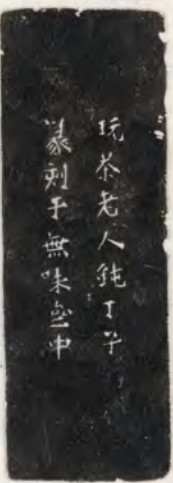 玩茶老人鈍丁手
篆刻于無味盦中